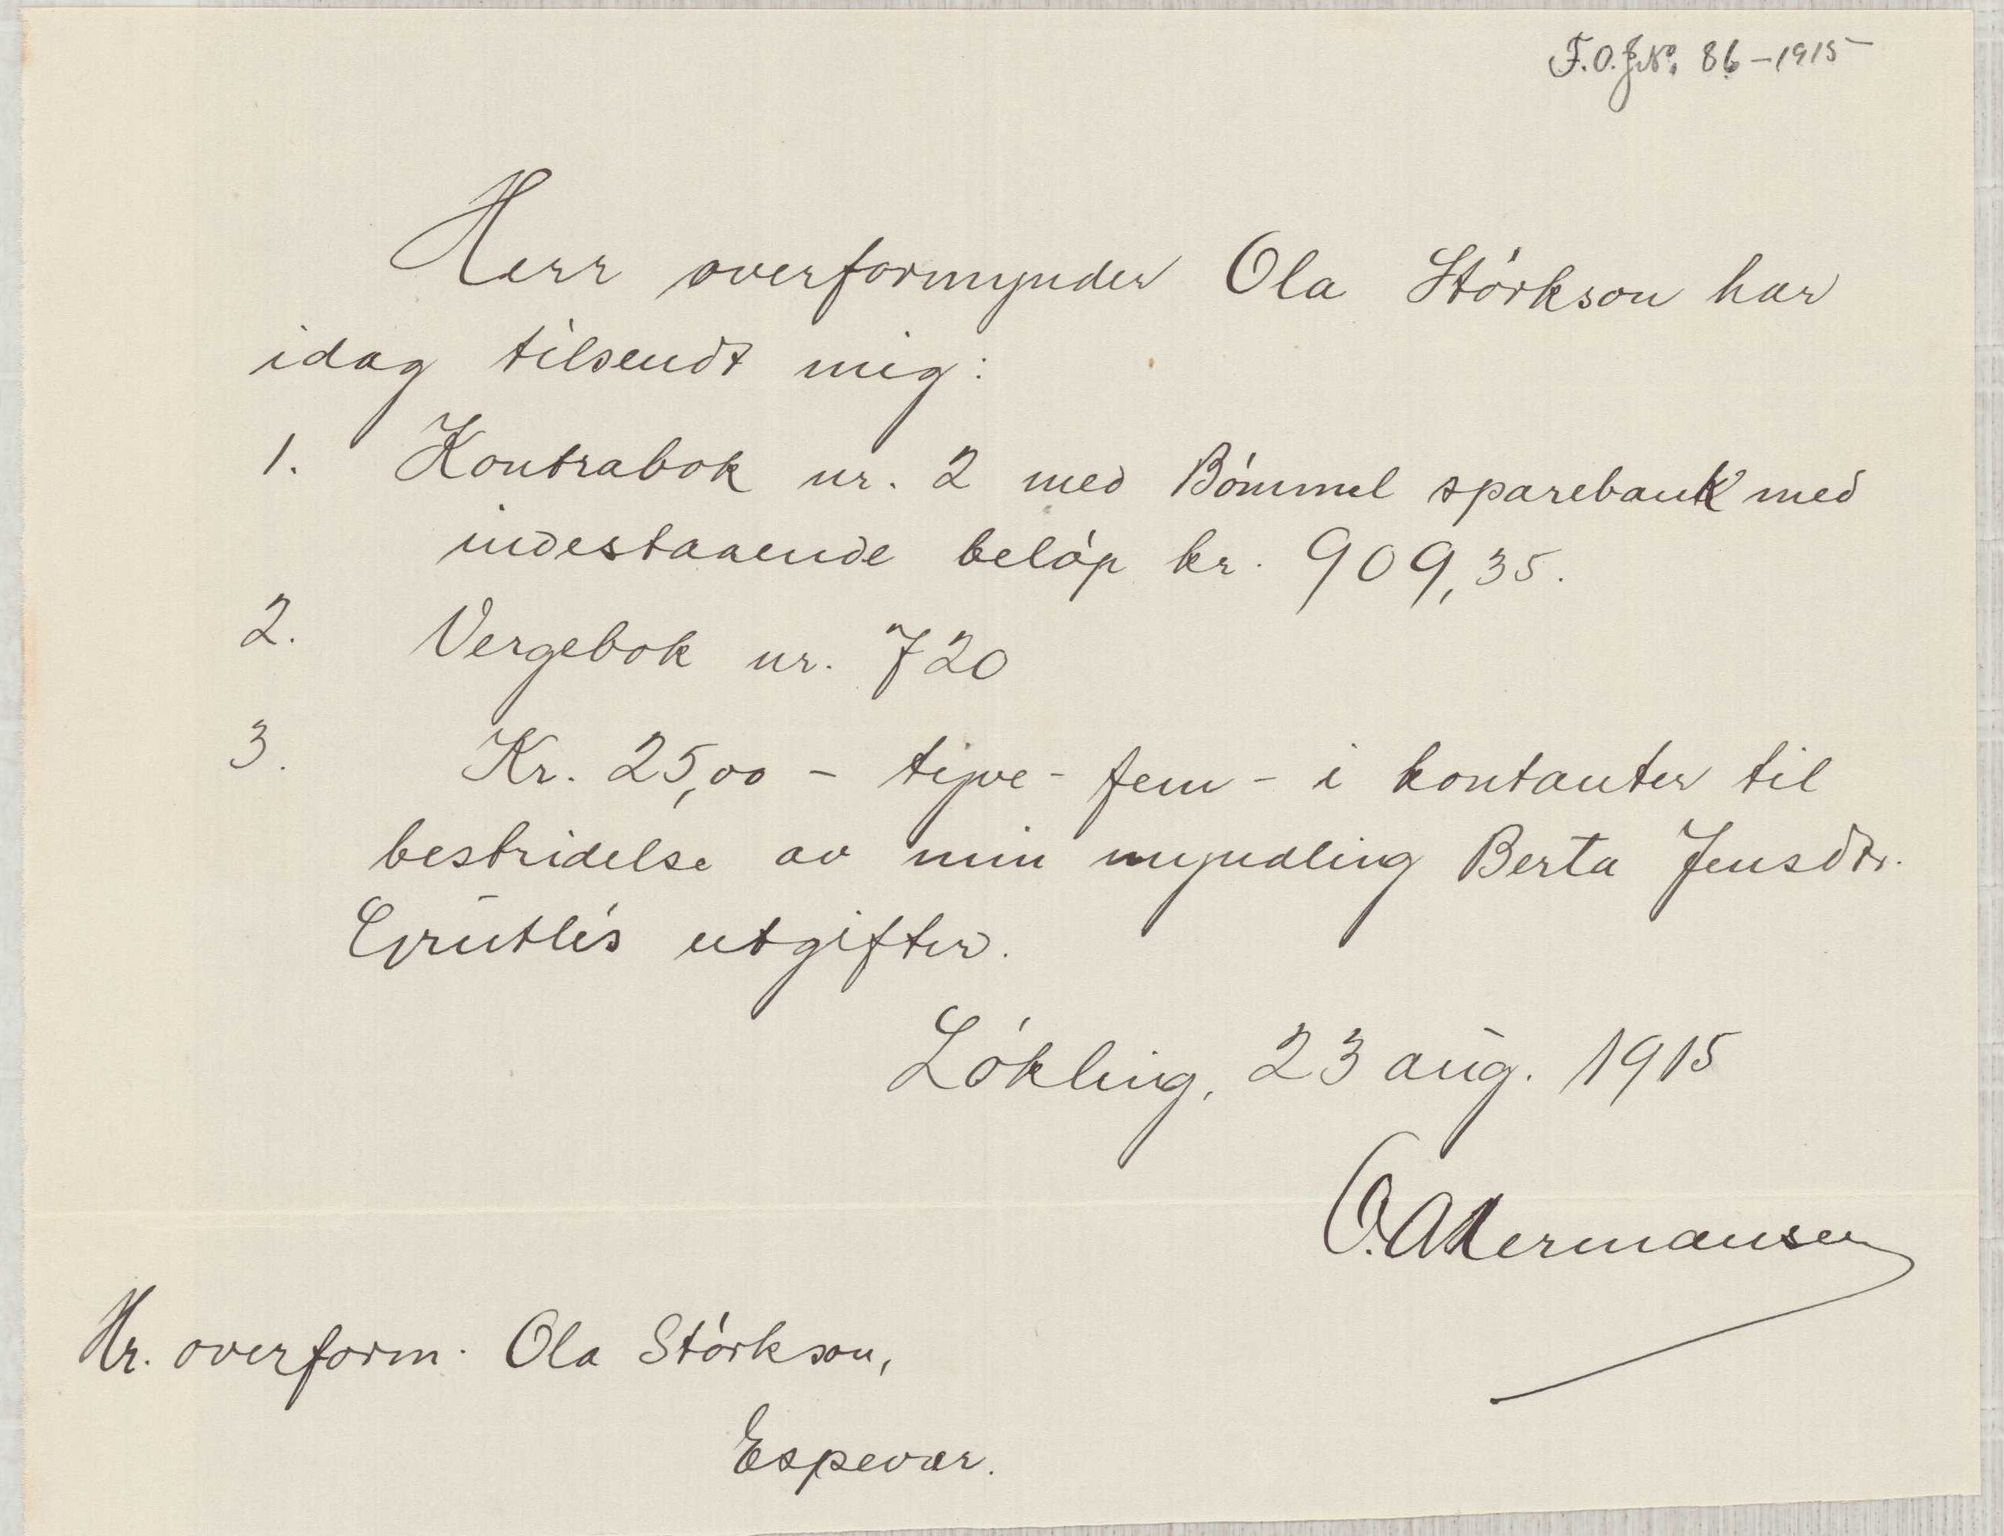 F.O.J.No. 86-1915
Herr overformynder Ola Störkson har
idag tilsendt mig:
1. Kontrabok nr. 2 med Bömmel sparebank med
indestaaende belöp kr. 909,35.
2. Vergebok nr. 720
3. Kr. 25,00 - tyve - fem - i kontanter til
bestridelse av min myndling Berta Jensdtr.
utgifter.
Lökling, 23 aug. 1915
Hr. overform. Ola Störkson,
Espevær.